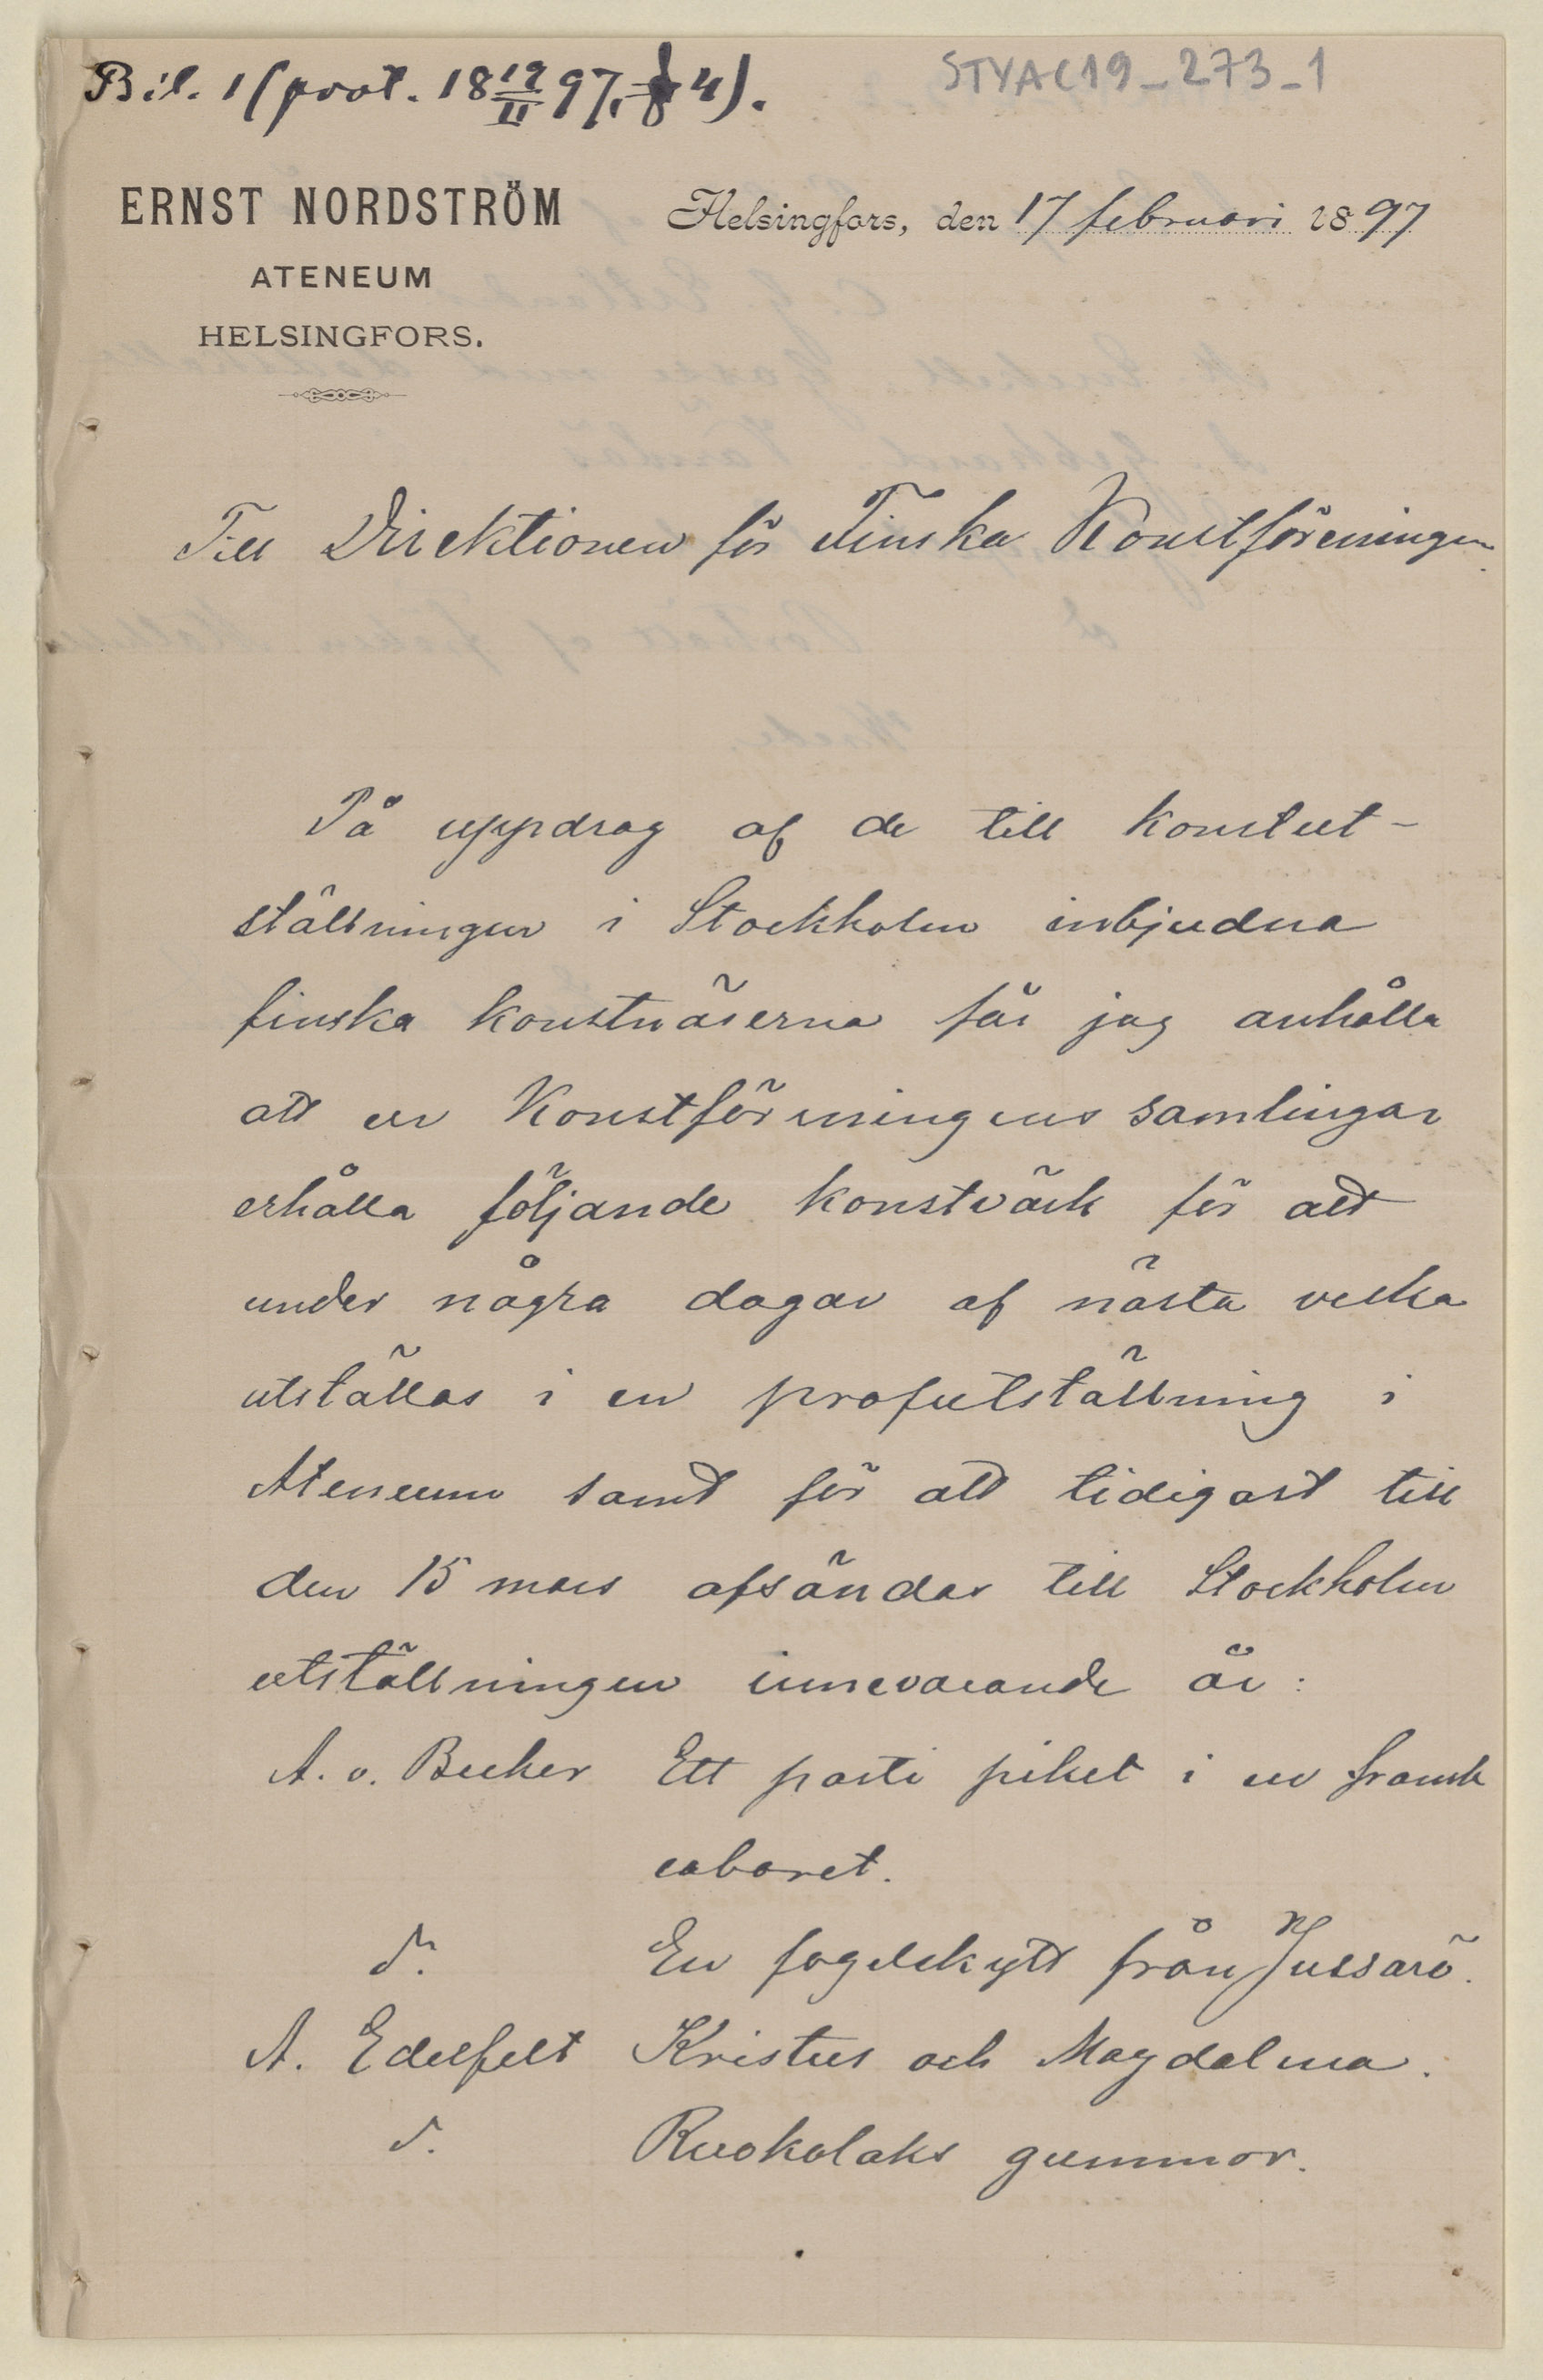 Bil. 1 (prot. 18 19/II 97, § 4).
STYAC19_273_1
ERNST NORDSTRÖM
ATENEUM
HELSINGFORS.
Helsingfors, den 17 februari 1897
Till Direktionen för Finska Konstföreningen.
På uppdrag af de till konstut-
ställningen i Stockholm inbjudna
finska konstnärerna får jag anhålla
att ur Konstföreningens samlingar
erhålla följande konstvärk för att
under några dagar af nästa vecka
utställas i en profutställning i
Ateneum samt för att tidigast till
den 15 mars afsändas till Stockholm
utställningen innevarande år:
A. v. Becker Ett parti piket i en fransk
cabaret.
d:o En fogelskytt från Jussarö.
A. Edelfelt Kristus och Magdalena.
d:o Ruokolaks gummor.